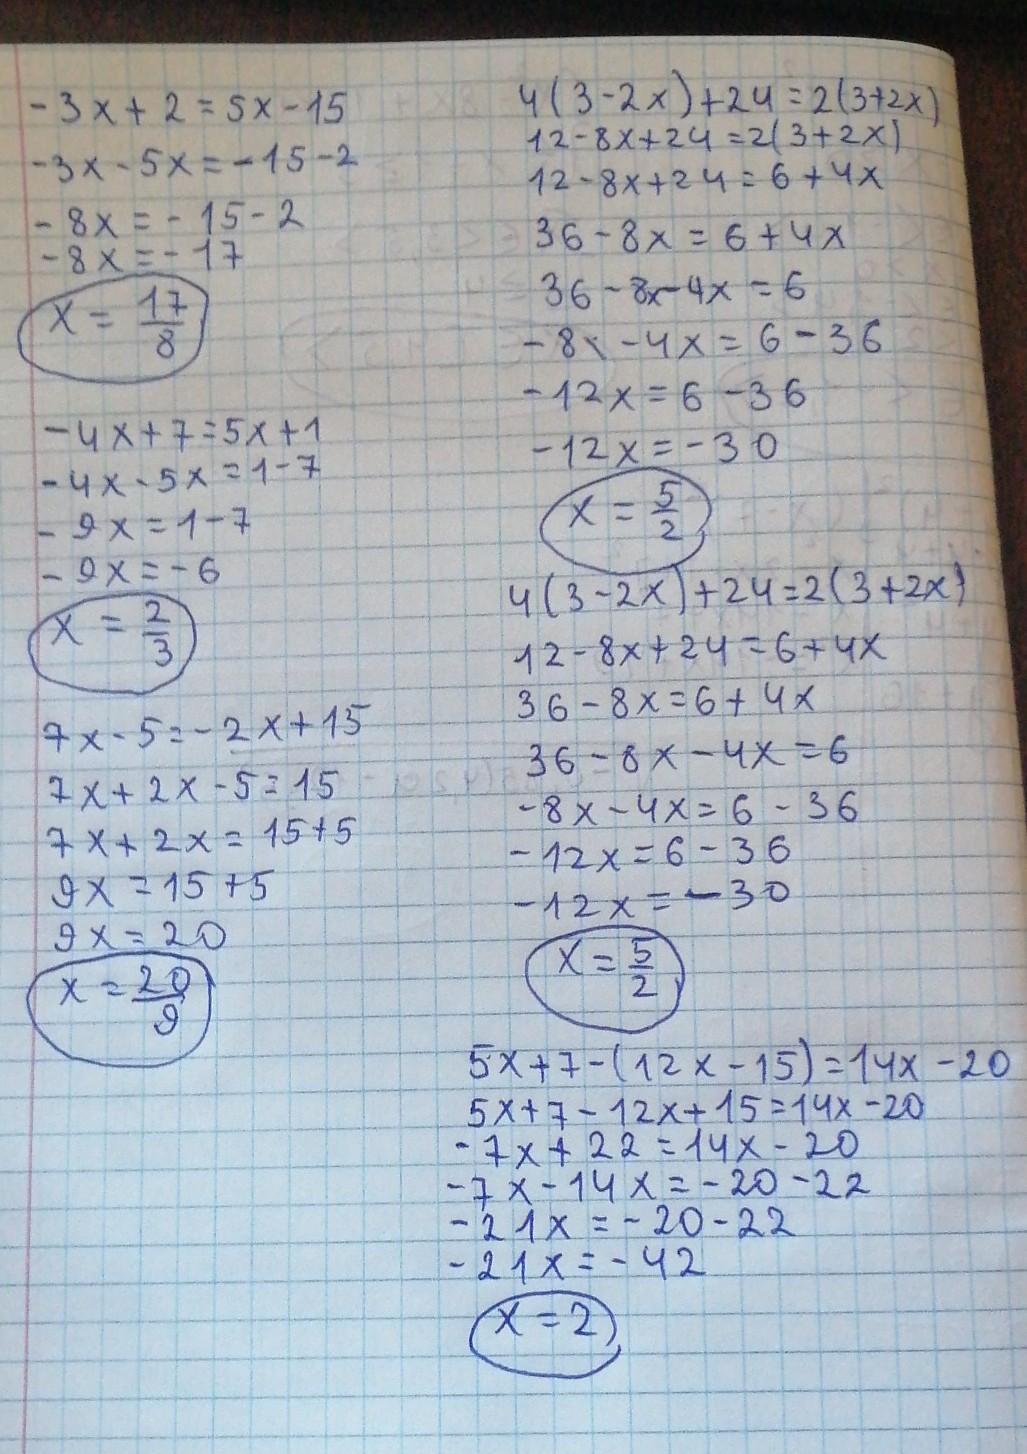 -3x+2=5x-15
-3x-5x=-15-2
-8x=-15-2
-8x=-17
x=17/8
-4x+7=5x+1
-4x-5x=1-7
-9x=1-7
-9x=-6
x=2/3
7x-5=-2x+15
7x+2x-5=15
7x+2x=15+5
9x=15+5
9x=20
x=20/9
4(3-2x)+24=2(3+2x)
12-8x+24=2(3+2x)
12-8x+24=6+4x
36-8x=6+4x
36-8x-4x=6
-8x-4x=6-36
-12x=6-36
-12x=-30
x=5/2
4(3-2x)+24=2(3+2x)
12-8x+24=6+4x
36-8x=6+4x
36-8x-4x=6
-8x-4x=6-36
-12x=6-36
-12x=-30
x=5/2
5x+7-(12x-15)=14x-20
5x+7-12x+15=14x-20
-7x+22=14x-20
-7x-14x=-20-22
-21x=-20-22
-21x=-42
x=2